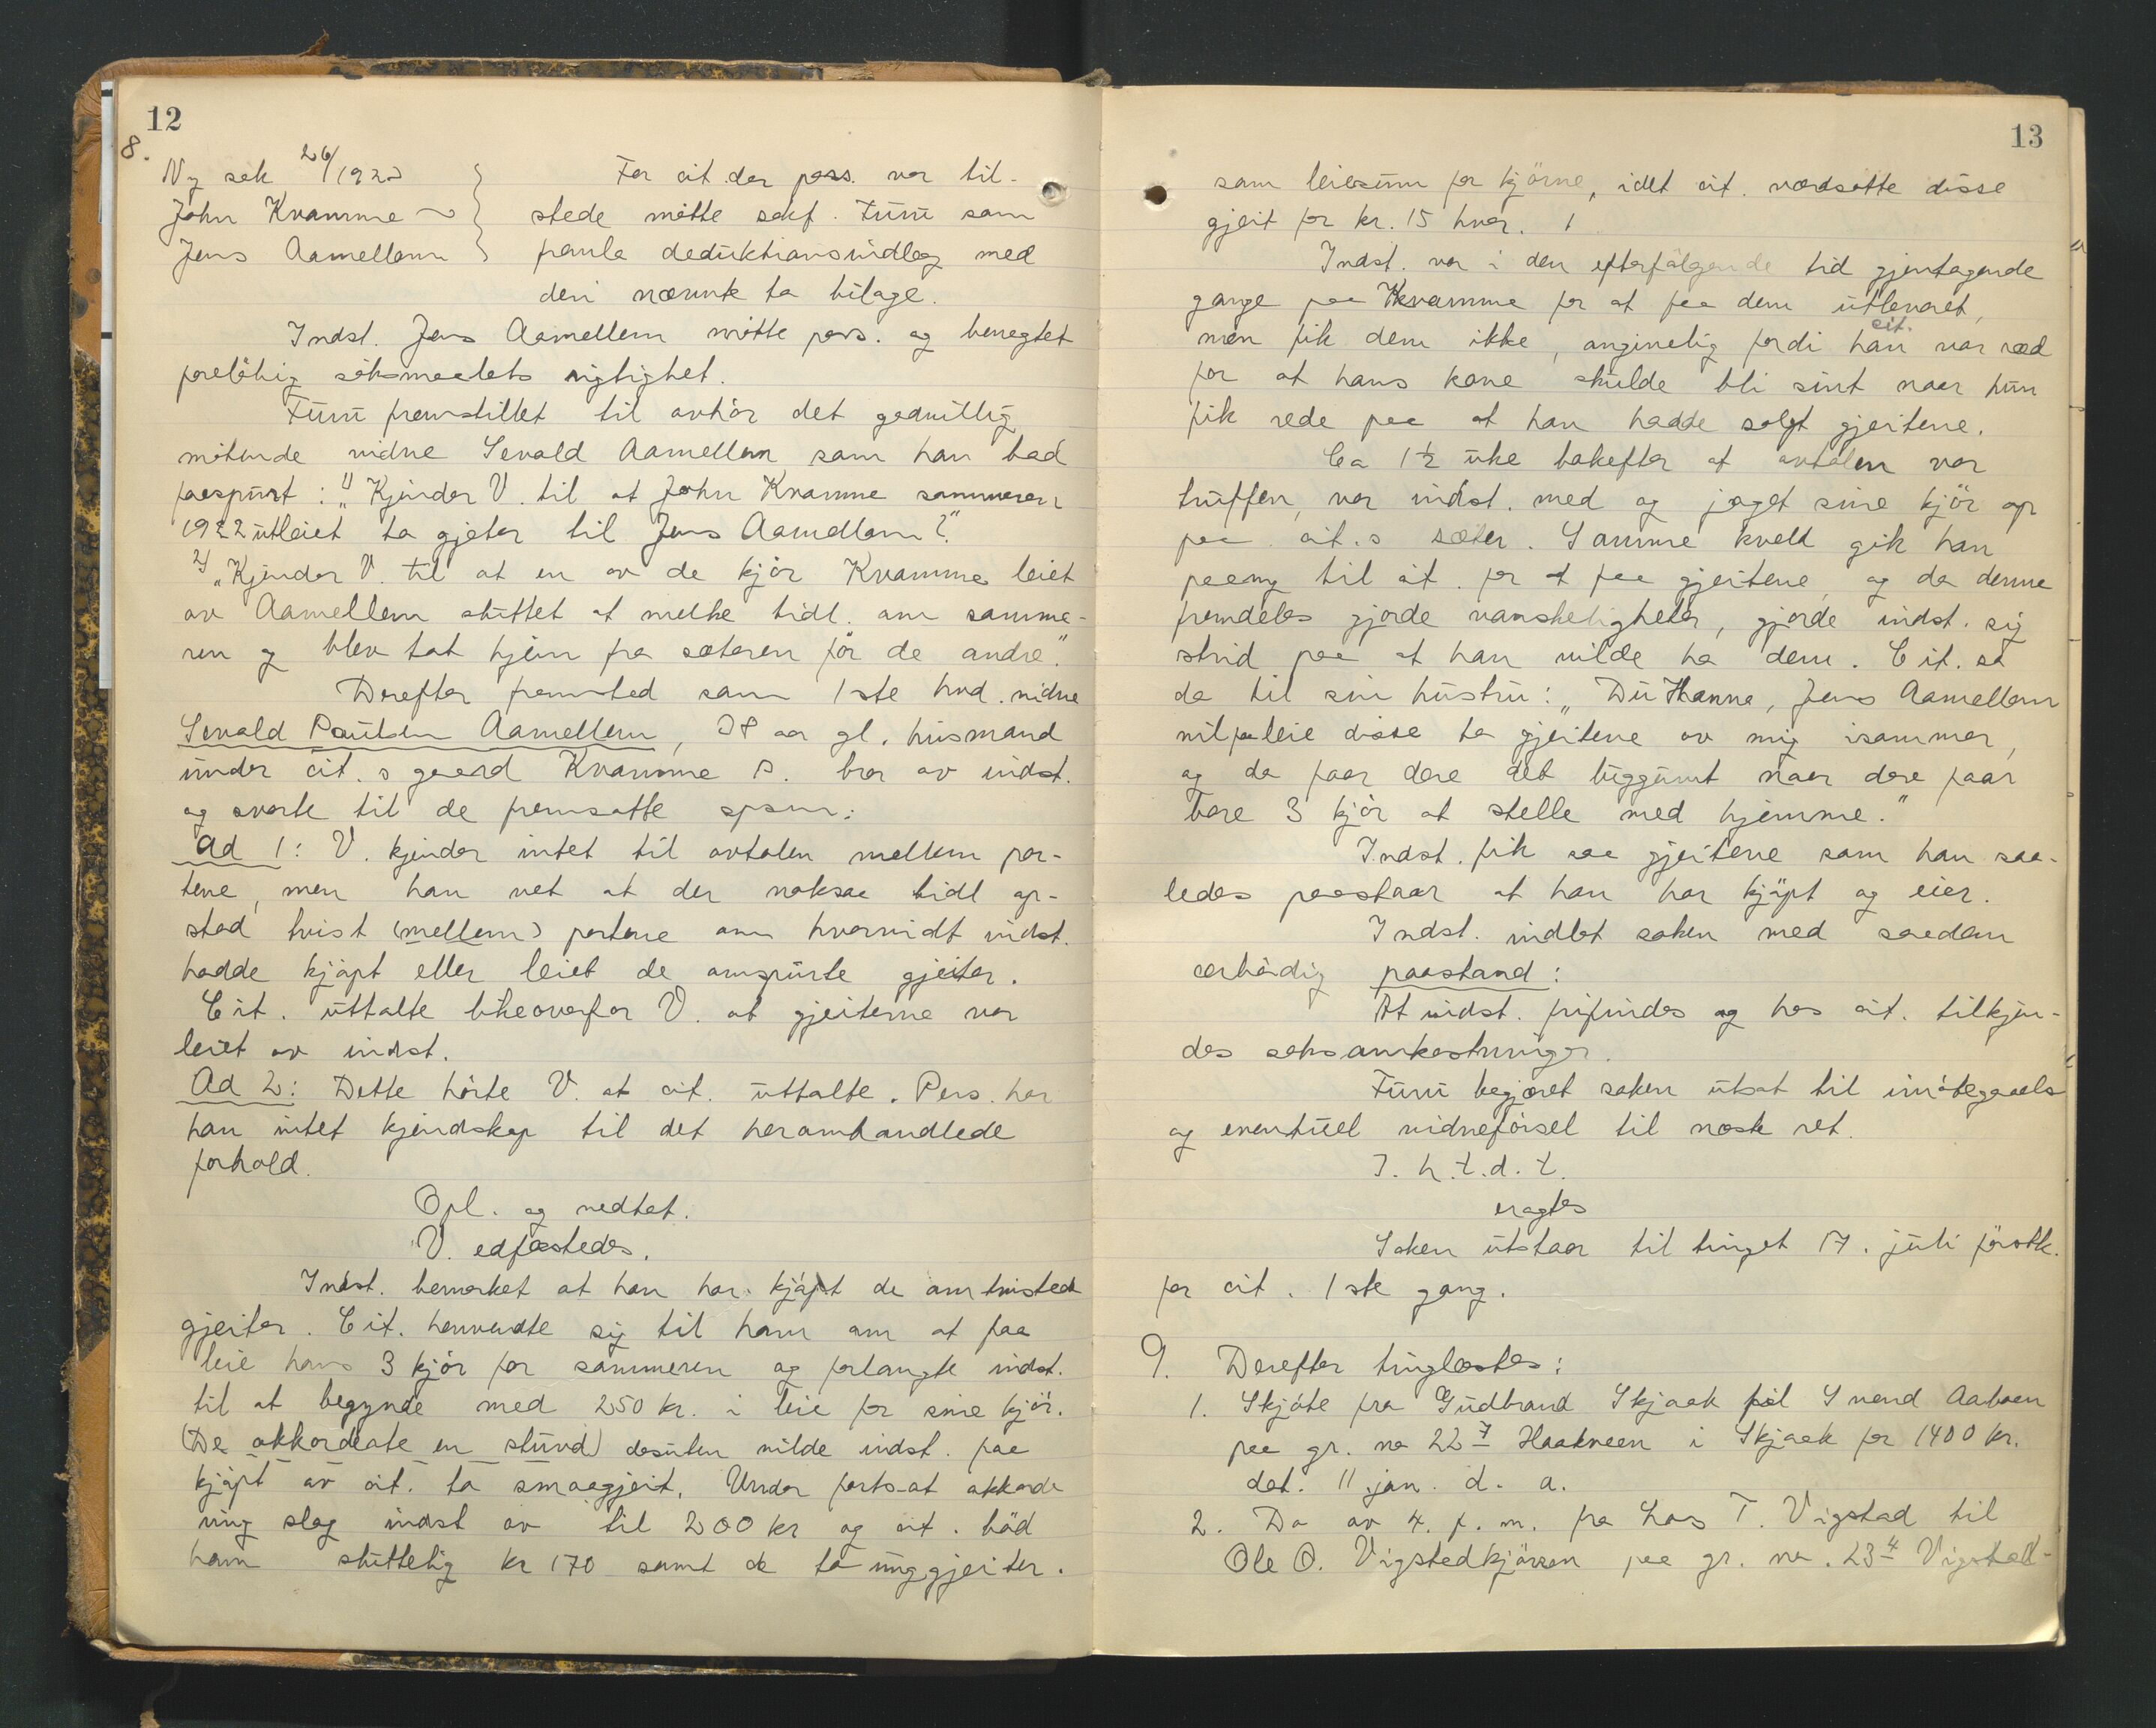 12
8.
Ny sak 26/1923
John Kvamme ~
Jens Aamellem
For cit. der pers. var til-
stede møtte sakf. Furu som
fremla deduktionsindleg med
deri nævnte to bilage.
Indst. Jens Aamellem møtte pers. og benegtet
foreløbig søksmaalets rigtighet.
Furu fremstillet til avhör det godvillig
møtende vidne Sevald Aamellem som han bad
paaspurt: 1) „Kjender V. til at John Kvamme sommeren
1922 utleiet to gjeter til Jens Aamellem?"
2) „Kjender V. til at en av de kjör Kvamme leiet
av Aamellem sluttet at melke tidl. om somme-
ren og blev tat hjem fra sæteren för de andre."
Derefter fremsted som 1ste hvd. vidne
Sevald Paulsen Aamellem, 38 aar gl. husmand
under cit.s gaard Kvamme s. bror av indst.
og svarte til de fremsatte spsm:
Ad 1: V. kjender intet til avtalen mellem par-
tene, men han vet at der noksaa tidl op-
stod tvist (mellem) partene om hvorvidt indst.
hadde kjøpt eller leiet de omspurte gjeiter.
Cit. uttalte likeoverfor V. at gjeiterne var
leiet av indst.
Ad 2: Dette hørte V. at cit. uttalte. Pers. har
han intet kjendskap til det heromhandlede
forhold.
Opl. og vedtat.
V. edfæstedes.
Indst. bemerket at han har kjøpt de omtvistede
gjeiter. Cit. henvendte sig til ham om at faa
leie hans 3 kjör for sommeren og forlangte indst.
til at begynde med 250 kr. i leie for sine kjör.
(De akkorderte en stund) desuten vilde indst. faa
kjøpt av cit. to smaagjeit. Under forts-at akkorde
ring slog indst av til 200 kr og cit. bød
ham sluttelig kr 170 samt de to unggjeiter.
13
som leiesum for kjörne, idet cit. værdsatte disse
gjeit for kr. 15 hver.
Indst. var i den efterfølgende tid gjentagende
gange paa Kvamme for at faa dem utleveret,
men fik dem ikke, angivelig fordi han cit. var ræd
for at hans kone skulde bli sint naar hun
fik rede paa at han hadde solgt gjeitene.
Ca 1½ uke bakefter at avtalen var
truffen, var indst. med og jaget sine kjör op
paa cit.s sæter. Samme kveld gik han
paany til cit. for at faa gjeitene og da denne
fremdeles gjorde vanskeligheter, gjorde indst. sig
strid paa at han vilde ha dem. Cit. sa
da til sin hustru: „Du Hanna, Jens Aamellem
vil faa leie disse to gjeitene av mig isommer,
og da faar dere det liggunt naar dere faar
bare 3 kjör at stelle med hjemme."
Indst. fik saa gjeitene som han saa-
ledes paastaar at han har kjøpt og eier.
Indst. indlot saken med saadan
ærbødig paastand:
At indst. frifindes og hos cit. tilkjen-
des saksomkostninger.
Furu begjæret saken utsat til imøtegaaelse
og eventuel vidneførsel til næste ret.
I. h. t. d. t.
eragtes
Saken utstaar til tinget 17. juli førstk.
for cit. 1ste gang.
9. Derefter tinglæstes:
1. Skjøte fra Gudbrand Skjaak til Svend Aaboen
paa gr. no 22 7 Haakveen i Skjaak for 1400 kr.
dat. 11 jan. d. a.
2. Do av 4. f. m. fra Lars T. Vigstad til
Ole O. Vigstadkjærren paa gr. no. 23 4 Vigstad-